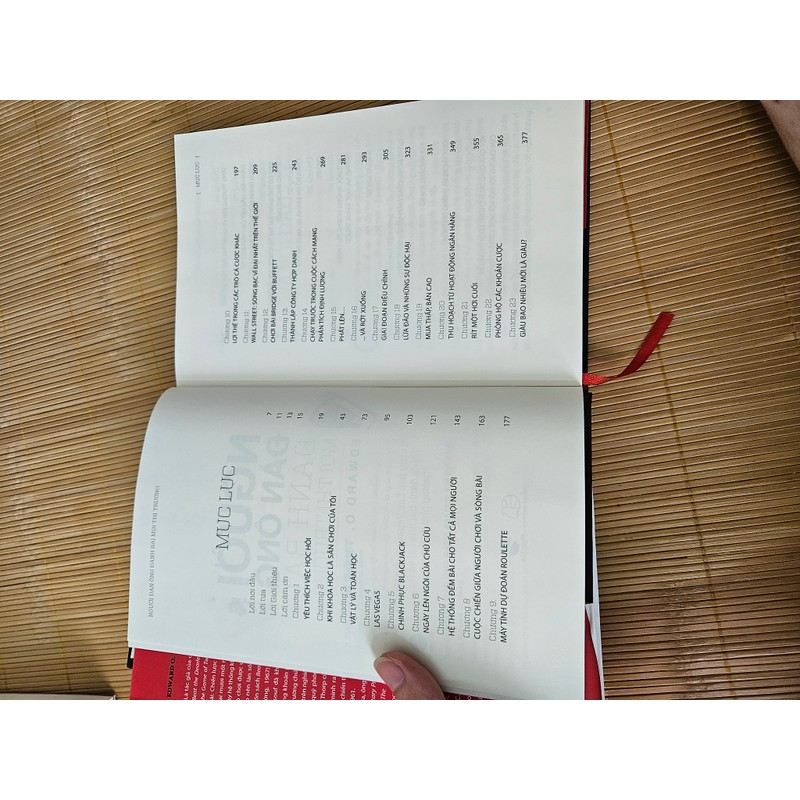 NGƯỜI ĐÀN ÔNG ĐÁNH BẠI MỌI THỊ TRƯỜNG
MỤC LỤC
Lời nói đầu 7
Lời tựa 11
Lời Giới thiệu 13
Lời cảm ơn 15
Chương 1
YÊU THÍCH VIỆC HỌC HỎI 19
Chương 2
KHI KHOA HỌC LÀ SÂN CHƠI CỦA TÔI 43
Chương 3
VẬT LÝ VÀ TOÁN HỌC 73
Chương 4
LAS VEGAS 95
Chương 5
CHINH PHỤC BLACKJACK 103
Chương 6
NGÀY LÊN NGÔI CỦA CHÚ CỪU 121
Chương 7
HỆ THỐNG ĐẾM BÀI CHO TẤT CẢ MỌI NGƯỜI 143
Chương 8
CUỘC CHIẾN GIỮA NGƯỜI CHƠI VÀ SÒNG BÀI 163
Chương 9:
MÁY TÍNH DỰ ĐOÁN ROULETTE 177
| MỤC LỤC |
Chương 10:
LỢI THẾ TRONG CÁC TRÒ CÁ CƯỢC KHÁC 197
Chương 11:
WALL STREET: SÒNG BẠC VĨ ĐẠI NHẤT TRÊN THẾ GIỚI 209
Chương 12:
CHƠI BÀI BRIDGE VỚI BUFFETT 225
Chương 13
THÀNH LẬP CÔNG TY HỢP DANH 243
Chương 14
CHẠY TRƯỚC TRONG CUỘC CÁCH MẠNG
PHÂN TÍCH ĐỊNH LƯỢNG 269
Chương 15
PHẤT LÊN... 281
Chương 16
... VÀ RỚT XUỐNG 293
Chương 17
GIAI ĐOẠN ĐIỀU CHỈNH 305
Chương 18
LỪA ĐẢO VÀ NHỮNG SỰ ĐỘC HẠI 323
Chương 19
MUA THẤP, BÁN CAO 331
Chương 20
THU HOẠCH TỪ HOẠT ĐỘNG NGÂN HÀNG 349
Chương 21
RÍT MỘT HƠI CUỐI 355
Chương 22
PHÒNG HỘ CÁC KHOẢN CƯỢC 365
Chương 23
GIÀU BAO NHIÊU MỚI LÀ GIÀU? 377
EDWARD O.